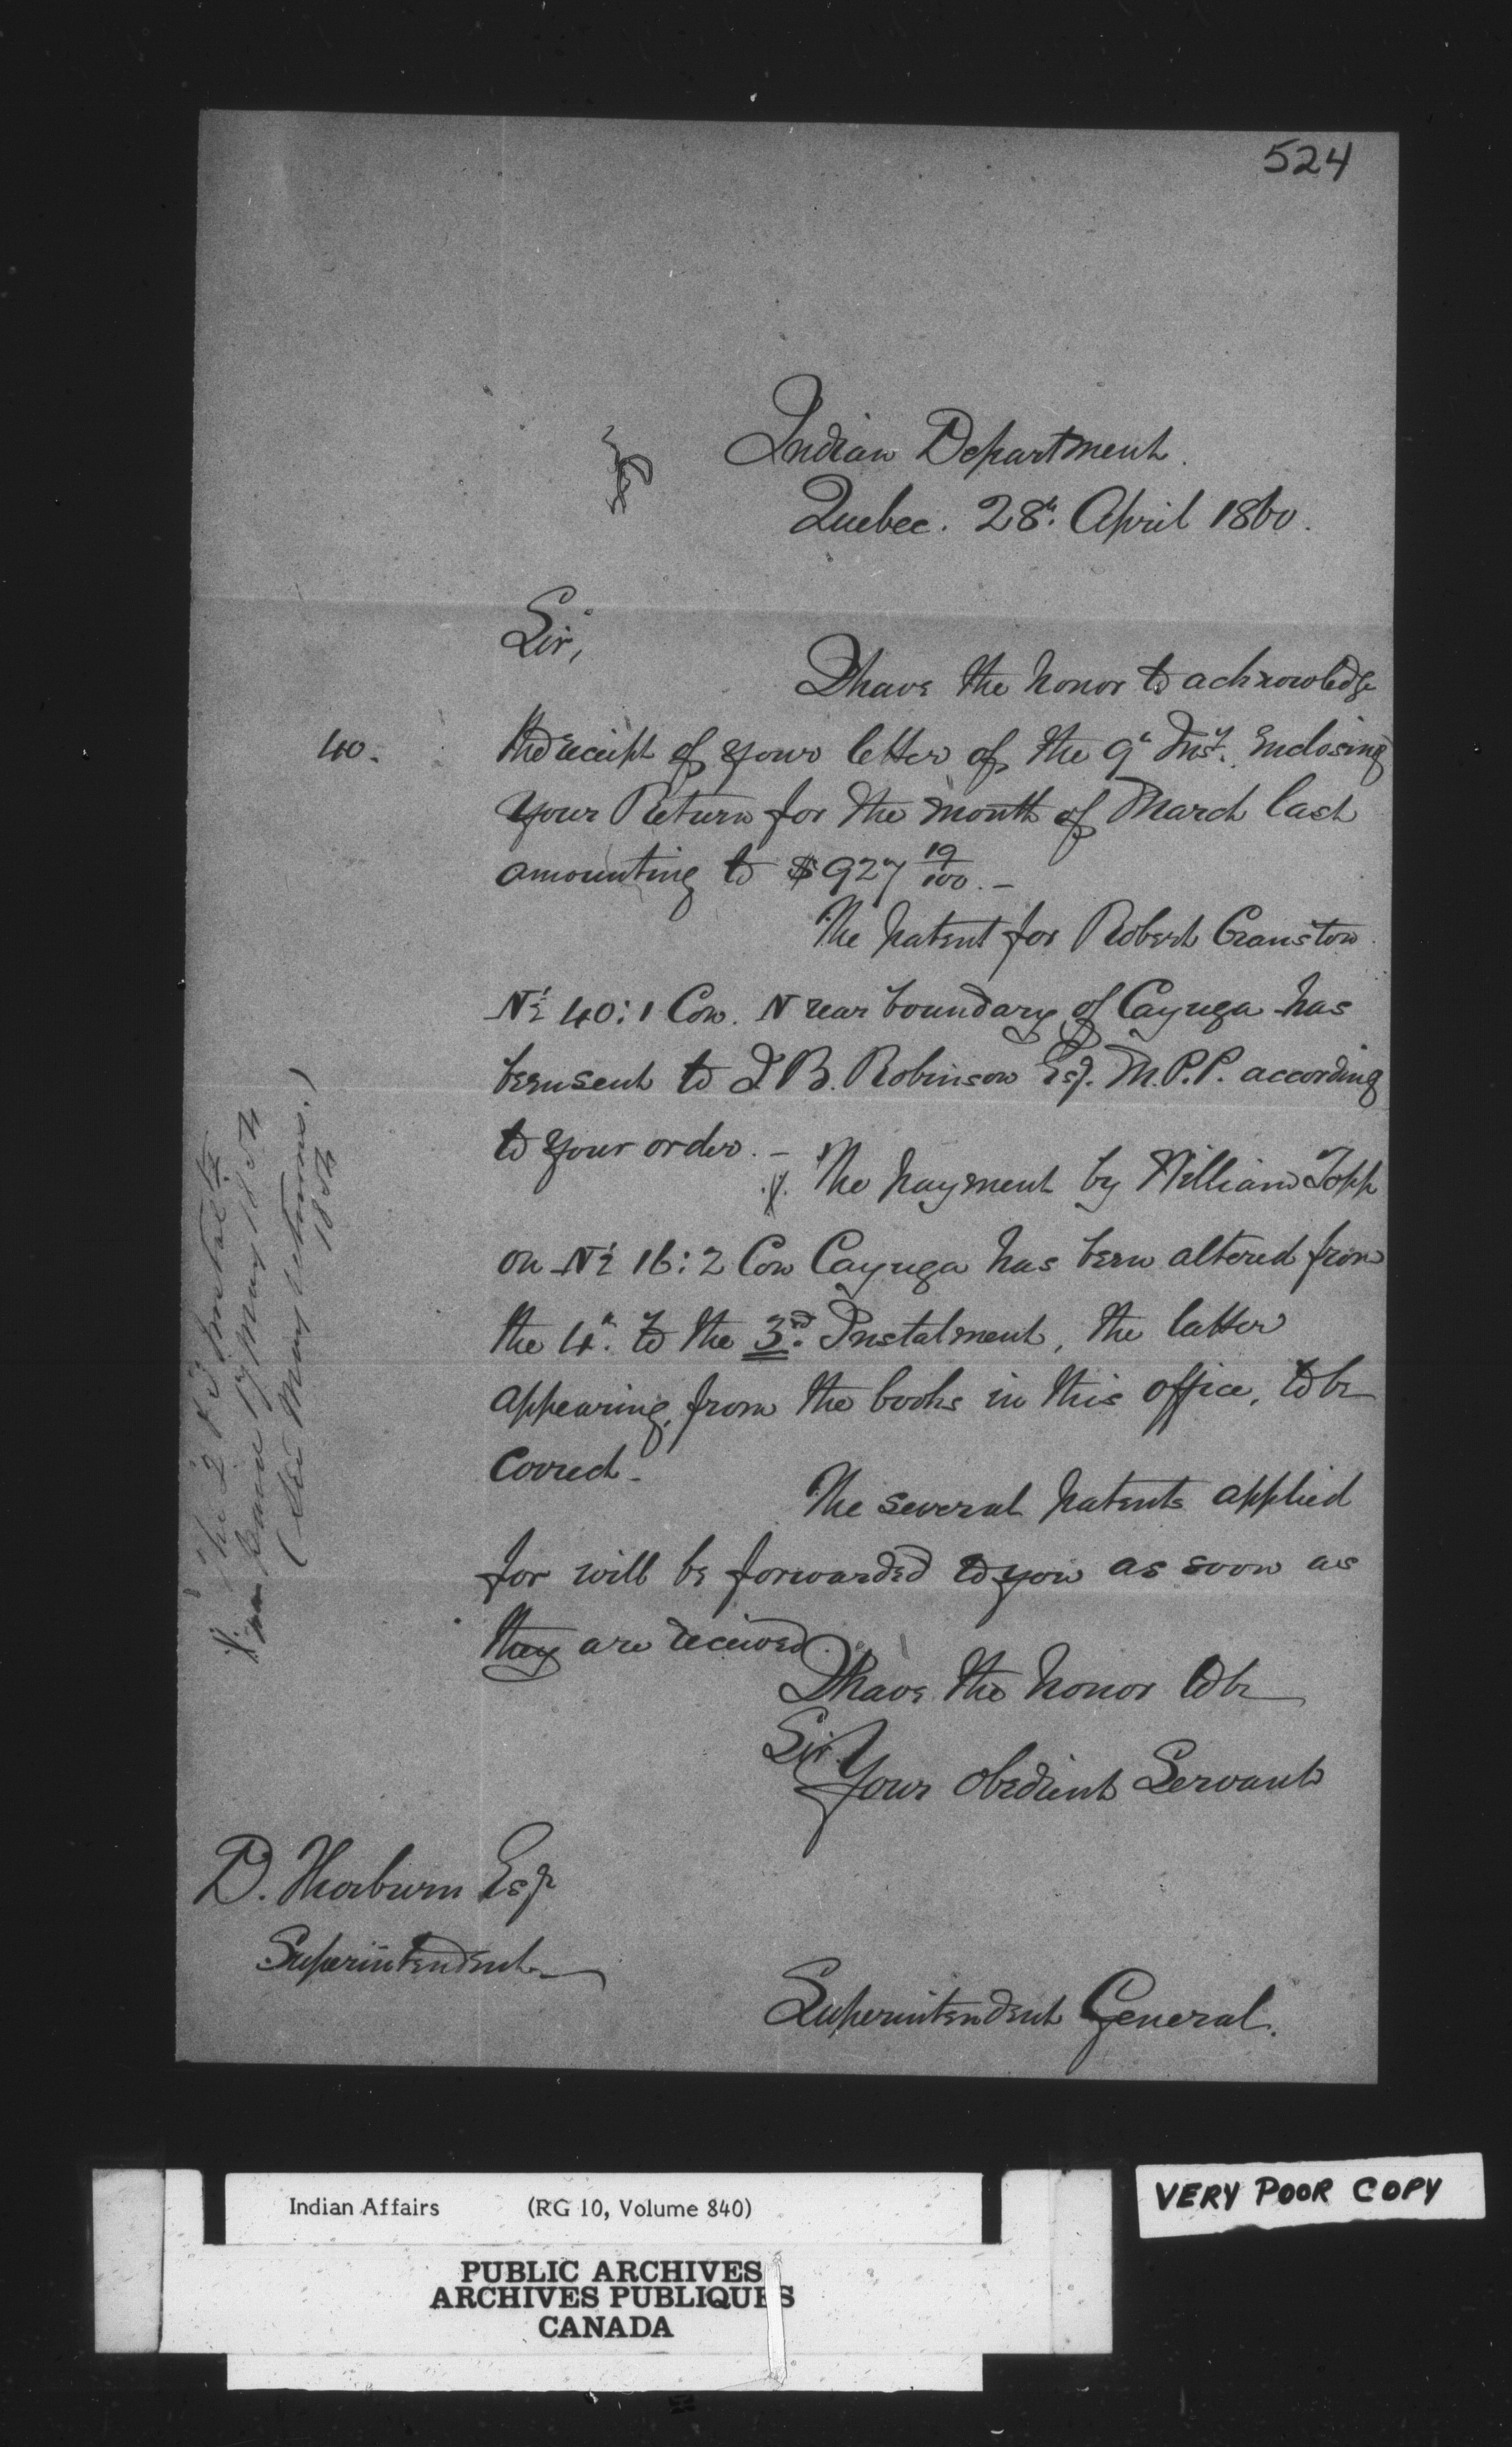 524
Indian Department.
Quebec. 28th. April 1860.
Sir,
I have the honor to acknowledge
40.
the receipt of your letter of the 9th Inst. Enclosing
your Return for the month of March last
amounting to $927 19/100. –
The patent for Robert Cranston
No 40:1 Con. N rear boundary of Cayuga has
been sent to J. B. Robinson Esq. M.P.P. according
to your order. –
The payment by William Topp
on No 16:2 Con Cayuga has been altered from
the 4th. to the 3rd. Instalment, the latter
appearing, from the books in this office, to be
Correct –
The several patents applied
for will be forwarded to you as soon as
they are received.
I have the honor to be
Sir
Your obedient Servant
D. Thorburn Esqr
Superintendent
Superintendent General.
The 2nd Instalt
17 May 1854
(See May Returns.)
1854
Indian Affairs (RG 10, Volume 840)
PUBLIC ARCHIVES
ARCHIVES PUBLIQUES
CANADA
VERY POOR COPY